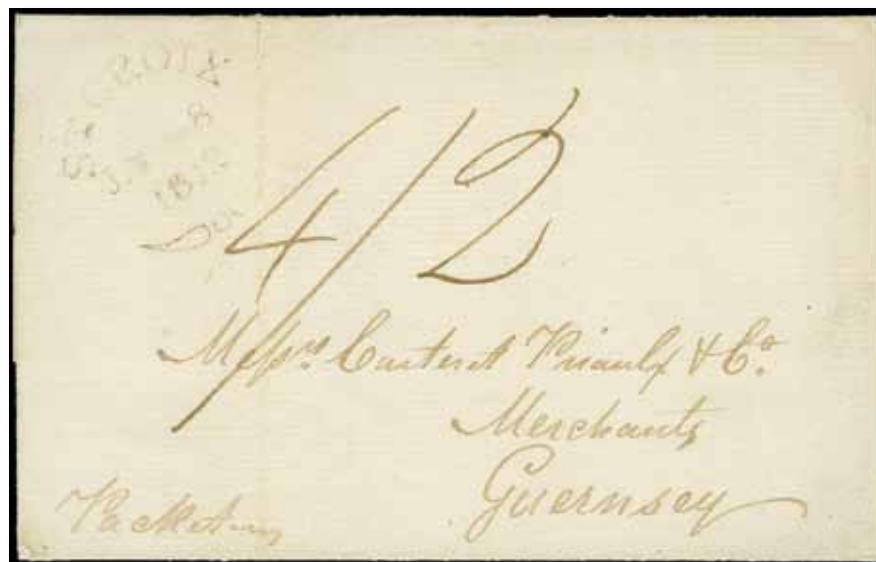 ST CROIX
8
4/2
Messrs. Carteret Priaulx & Co.
Merchants
Guernsey